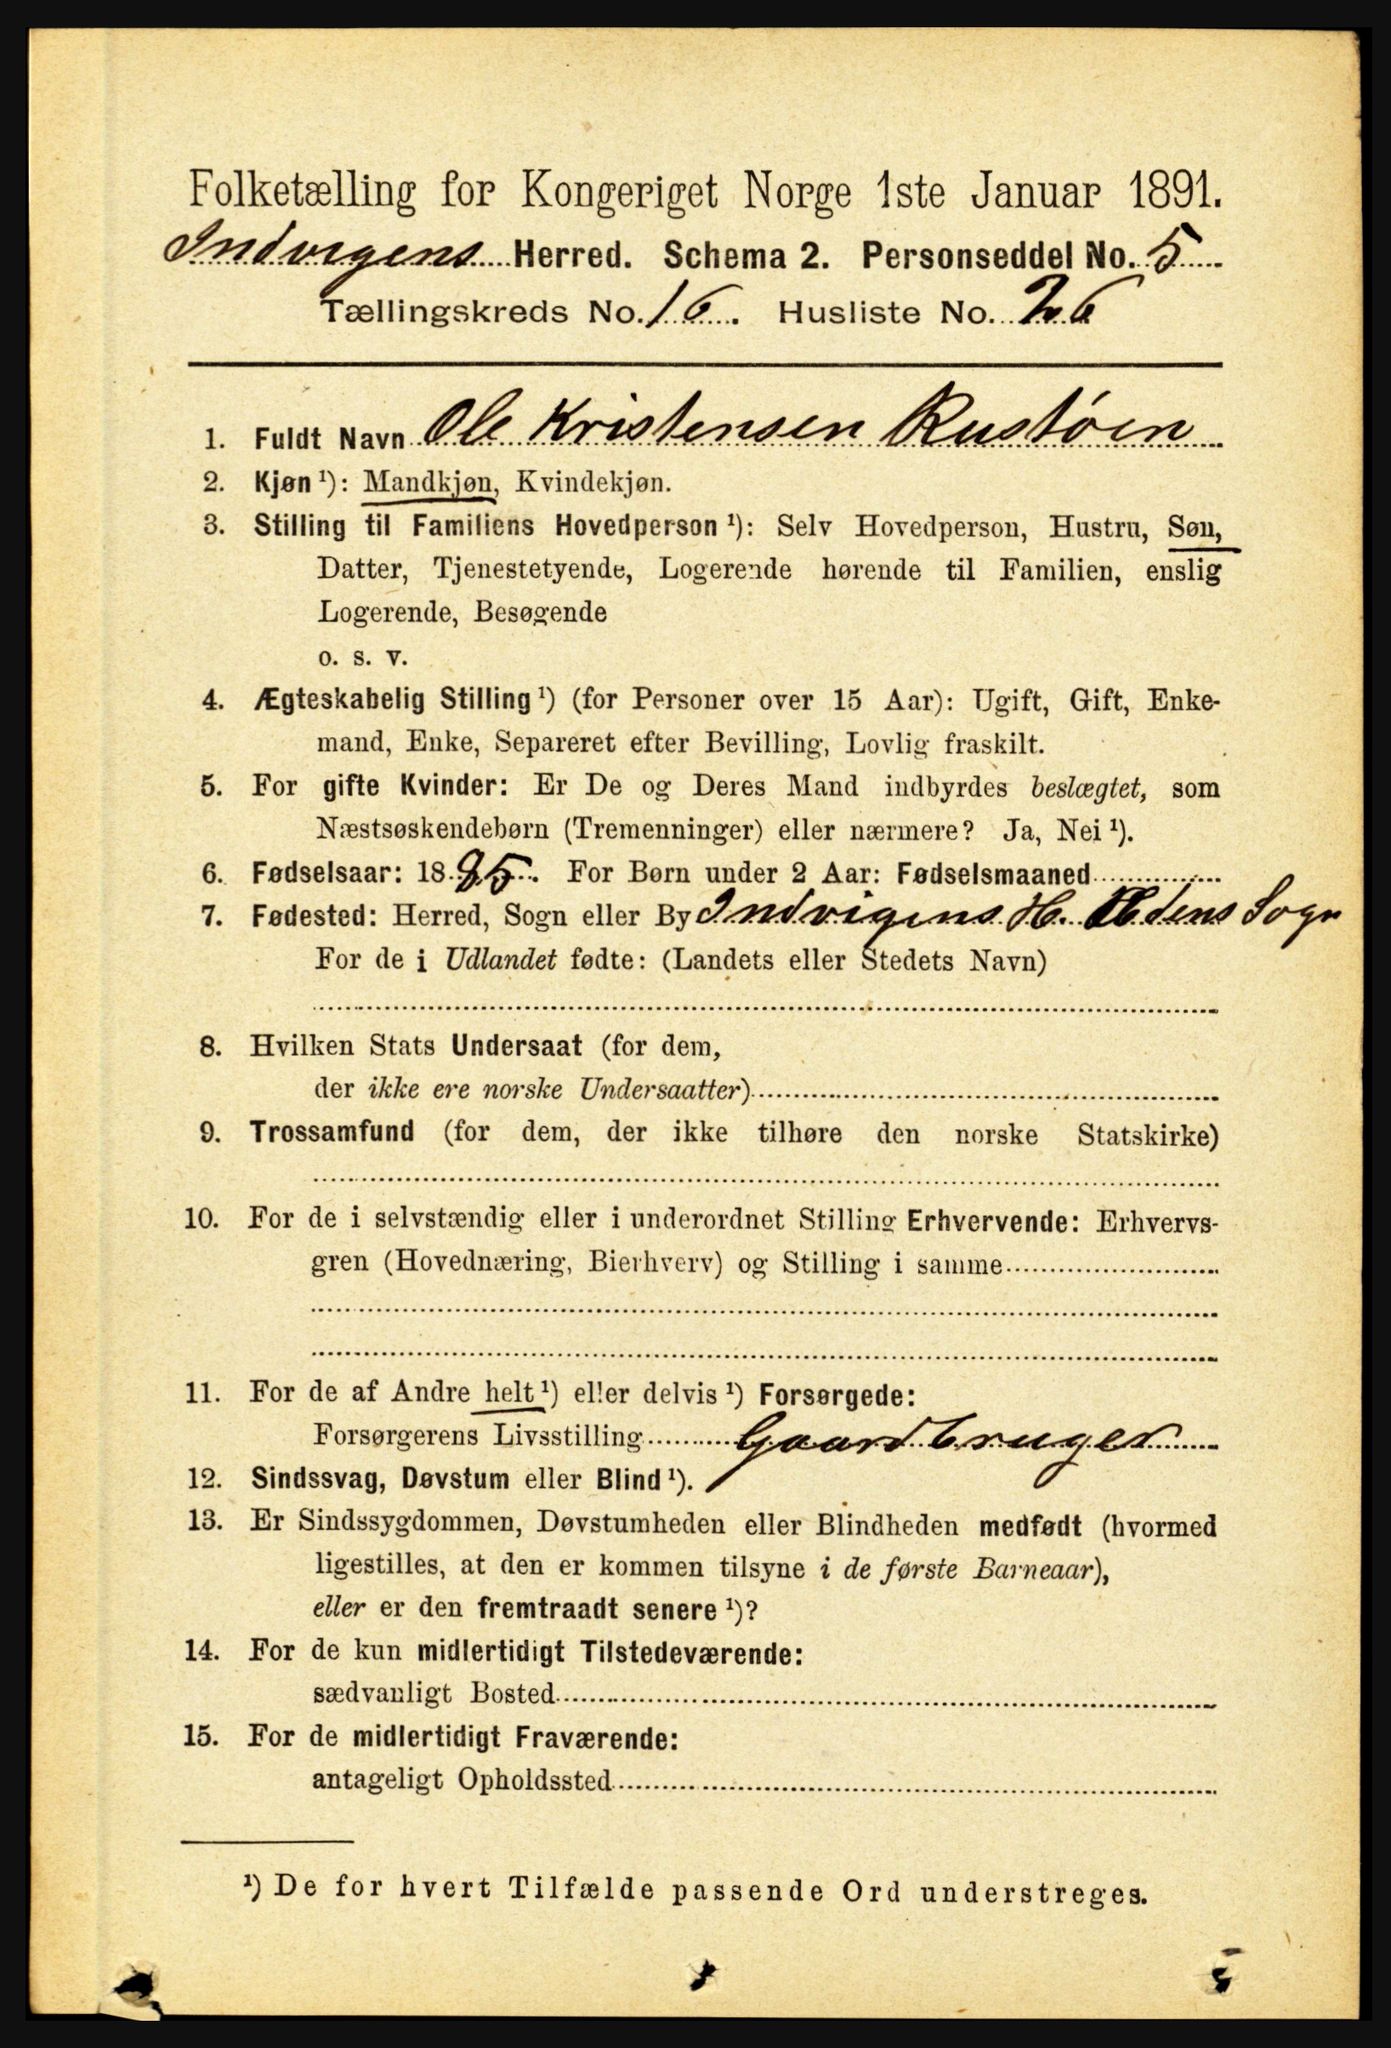 Folketælling for Kongeriget Norge 1ste Januar 1891.
Indvigens Herred. Schema 2. Personseddel No. 5
Tællingskreds No. 16. Husliste No. 26
1. Fuldt Navn Ole Kristensen Rustøen
2. Kjøn ¹): Mandkjøn, Kvindekjøn.
3. Stilling til Familiens Hovedperson ¹): Selv Hovedperson, Hustru, Søn,
Datter, Tjenestetyende, Logerende hørende til Familien, enslig
Logerende, Besøgende
o. s. v.
4. Ægteskabelig Stilling ¹) (for Personer over 15 Aar): Ugift, Gift, Enke-
mand, Enke, Separeret efter Bevilling, Lovlig fraskilt.
5. For gifte Kvinder: Er De og Deres Mand indbyrdes beslægtet, som
Næstsøskendebørn (Tremenninger) eller nærmere? Ja, Nei ¹).
6. Fødselsaar: 1885. For Børn under 2 Aar: Fødselsmaaned
7. Fødested: Herred, Sogn eller By Indvigens H. Sogn
For de i Udlandet fødte: (Landets eller Stedets Navn)
8. Hvilken Stats Undersaat (for dem,
der ikke ere norske Undersaatter)
9. Trossamfund (for dem, der ikke tilhøre den norske Statskirke)
10. For de i selvstændig eller i underordnet Stilling Erhvervende: Erhvervs-
gren (Hovednæring, Bierhverv) og Stilling i samme
11. For de af Andre helt ¹) eller delvis ¹) Forsørgede:
Forsørgerens Livsstilling Gaardbruger
12. Sindssvag, Døvstum eller Blind ¹).
13. Er Sindssygdommen, Døvstumheden eller Blindheden medfødt (hvormed
ligestilles, at den er kommen tilsyne i de første Barneaar),
eller er den fremtraadt senere ¹)?
14. For de kun midlertidigt Tilstedeværende:
sædvanligt Bosted
15. For de midlertidigt Fraværende:
antageligt Opholdssted
¹) De for hvert Tilfælde passende Ord understreges.